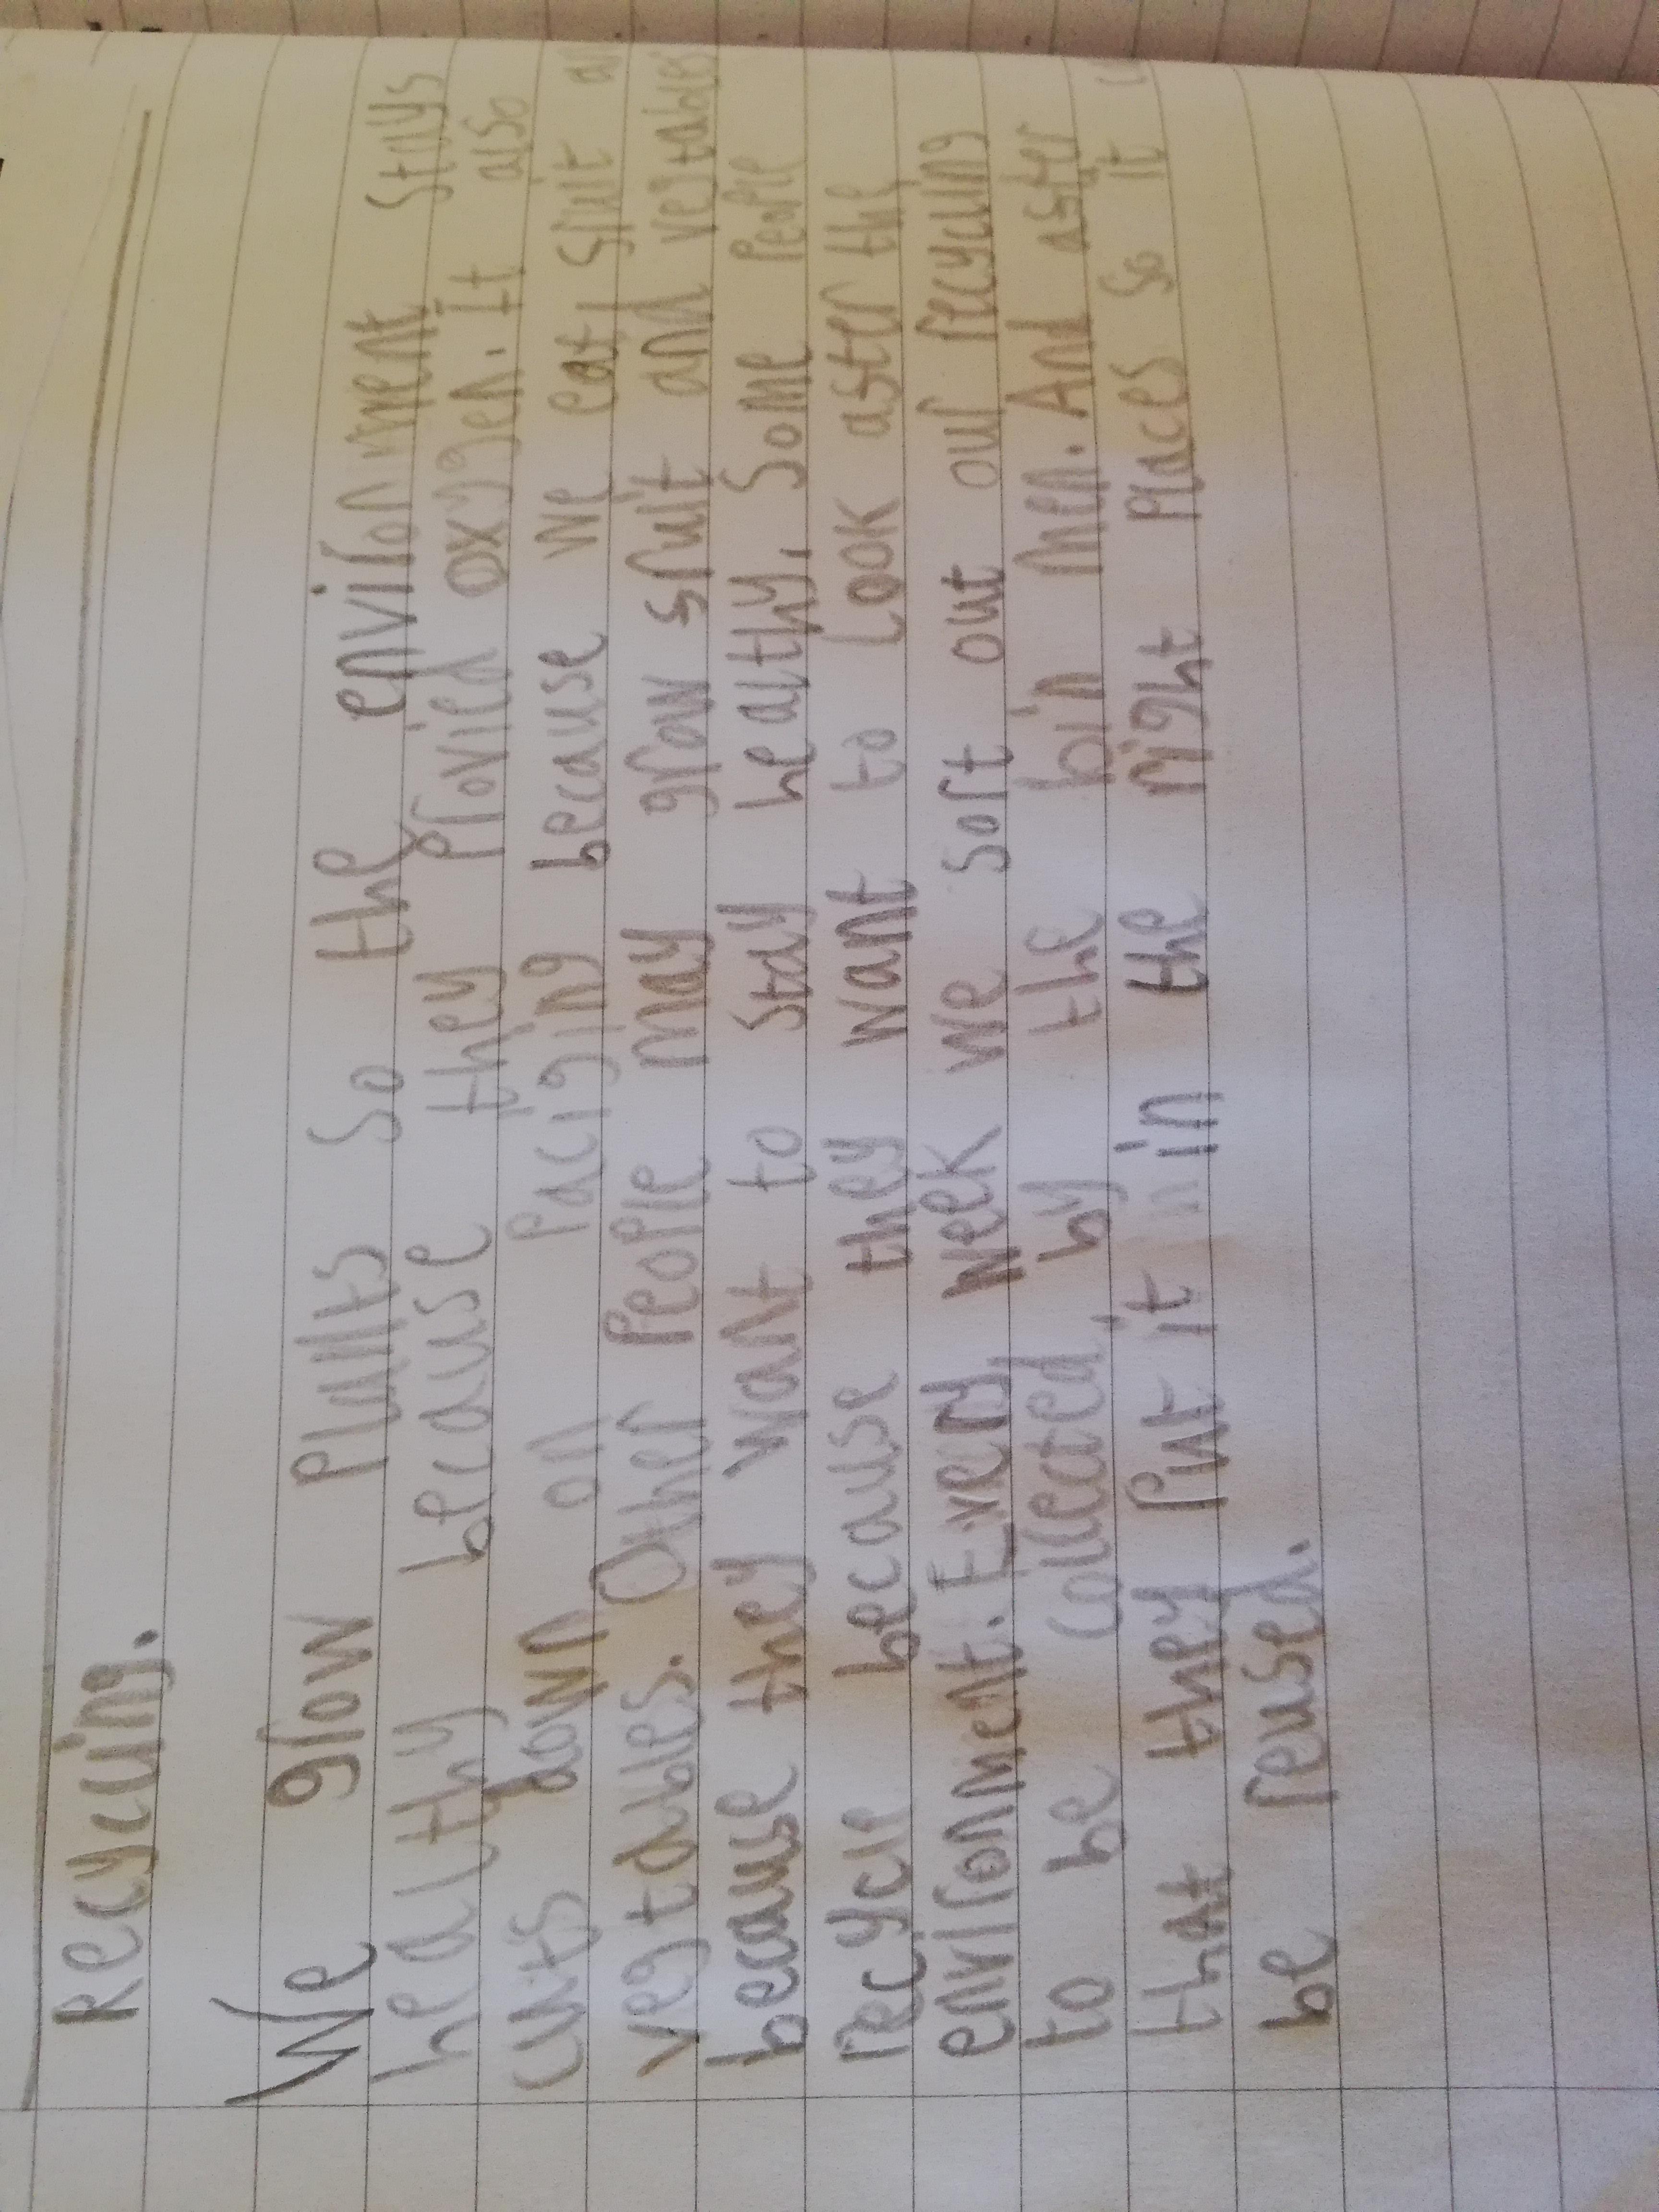 Recycling.
We grow Plants so the environment stays
healthy because they Provied oxygen. It also
cuts down on Paciging because we eat fruit an
vegtables. Other People may grow fruit and vegtables
because they want to stay healthy. Some People
recycle because they want to look after the
environment. Every week we sort out our recycling
to be collected, by the bin men. And after
that they Put it in the right Places So it
be reused.